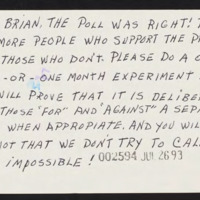 BRIAN, THE POLL WAS RIGHT!
MORE PEOPLE WHO SUPPORT THE
THOSE WHO DON'T. PLEASE DO A
-OR- ONE MONTH EXPERIMENT
WILL PROVE THAT IT IS
THOSE "FOR" AND "AGAINST" A
WHEN APPROPIATE. AND YOU WILL
NOT THAT WE DON'T TRY TO CALL
IMPOSSIBLE! 002594 JUL 26 93